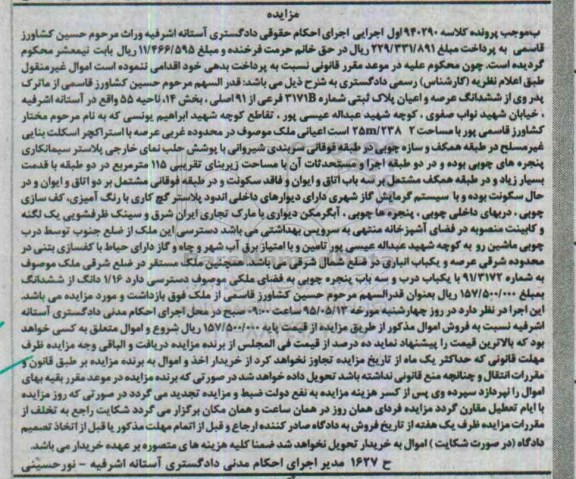 مزایده
بموجب پرونده کلاسه ۹۴۰۲۹۰ اول اجرایی اجرای احکام حقوقی دادگستری آستانه اشرفیه وراث مرحوم حسین کشاورز
قاسمی به پرداخت مبلغ ۲۲۹/۳۳۱/۸۹۱ ریال در حق خانم حرمت فرخنده و مبلغ ۱۱/۴۶۶/۵۹۵ ریال بابت نیمعشر محکوم
گردیده است. چون محکوم علیه در موعد مقرر قانونی نسبت به پرداخت بدهی خود اقدامی ننموده است اموال غیرمنقول
طبق اعلام نظریه (کارشناس) رسمی دادگستری به شرح ذیل می باشد: قدر السهم مرحوم حسین کشاورز قاسمی از ماترک
پدر وی از ششدانگ عرصه و اعیان پلاک ثبتی شماره ۳۱۷۱B فرعی از ۹۱ اصلی، بخش ۱۴، ناحیه ۵۵ واقع در آستانه اشرفیه
، خیابان شهید نواب صفوی، کوچه شهید عبداله عیسی پور، تقاطع کوچه شهید ابراهیم یونسی که به نام مرحوم مختار
کشاورز قاسمی پور با مساحت ۲۵m/۲۳۸ ۲ است اعیانی ملک موصوف در محدوده غربی عرصه با استراکچر اسکلت بنایی
غیرمسلح در طبقه همکف و سازه چوبی در طبقه فوقانی سربندی شیروانی با پوشش حلب نمای خارجی پلاستر سیمانکاری
پنجره های چوبی بوده و در دو طبقه اجرا و مستحدثات آن با مساحت زیربنای تقریبی ۱۱۵ مترمربع در دو طبقه با قدمت
بسیار زیاد و در طبقه همکف مشتمل بر سه باب اتاق و ایوان و فاقد سکونت و در طبقه فوقانی مشتمل بر دو اتاق و ایوان و در
حال سکونت بوده و با سیستم گرمایش گاز شهری دارای دیوارهای داخلی اندود پلاستر گچ کاری با رنگ آمیزی، کف سازی
چوبی، دربهای داخلی چوبی، پنجره ها چوبی، آبگرمکن دیواری با مارک تجاری ایران شرق و سینک ظرفشویی یک لگنه
و کابینت منصوبه در فضای آشپزخانه منتهی به سرویس بهداشتی می باشد دسترسی این ملک از ضلع جنوب توسط درب
چوبی ماشین رو به کوچه شهید عبداله عیسی پور تامین و با امتیاز برق آب شهر و چاه و گاز دارای حیاط با کفسازی بتنی در
محدوده شرقی عرصه و یکباب انباری در ضلع شمال شرقی می باشد. همچنین ملک مستقر در ضلع شرقی ملک موصوف
به شماره ۹۱/۳۱۷۲ با یکباب درب و سه باب پنجره چوبی به فضای ملکی موصوف دسترسی دارد ۱/۱۶ دانگ از ششدانگ
بمبلغ ۱۵۷/۵۰۰/۰۰۰ ریال بعنوان قدرالسهم مرحوم حسین کشاورز قاسمی از ملک فوق بازداشت و مورد مزایده می باشد.
این اجرا در نظر دارد در روز چهارشنبه مورخه ۹۵/۰۵/۱۳ ساعت ۰۹:۰۰ صبح در محل اجرای احکام مدنی دادگستری آستانه
اشرفیه نسبت به فروش اموال مذکور از طریق مزایده از قیمت پایه ۱۵۷/۵۰۰/۰۰۰ ریال شروع و اموال متعلق به کسی خواهد
بود که بالاترین قیمت را پیشنهاد نماید ده درصد از قیمت فی المجلس از برنده مزایده دریافت و الباقی وجه مزایده ظرف
مهلت قانونی که حداکثر یک ماه از تاریخ مزایده تجاوز نخواهد کرد از خریدار اخذ و اموال به برنده مزایده بر طبق قانون و
مقررات انتقال و چنانچه منع قانونی نداشته باشد تحویل داده خواهد شد در صورتی که برنده مزایده در موعد مقرر بقیه بهای
اموال را نپردازد سپرده وی پس از کسر هزینه مزایده به نفع دولت ضبط و مزایده تجدید می گردد در صورتی که روز مزایده
با ایام تعطیل مقارن گردد مزایده فردای همان روز در همان ساعت و همان مکان برگزار می گردد شکایت راجع به تخلف از
مقررات مزایده ظرف یک هفته از تاریخ فروش به دادگاه صادر کننده ارجاع و قبل از اتمام مهلت مذکور یا قبل از اتخاذ تصمیم
دادگاه (در صورت شکایت) اموال به خریدار تحویل نخواهد شد ضمنا کلیه هزینه های متصوره بر عهده خریدار می باشد.
ح ۱۶۲۷ مدیر اجرای احکام مدنی دادگستری آستانه اشرفیه - نورحسینی